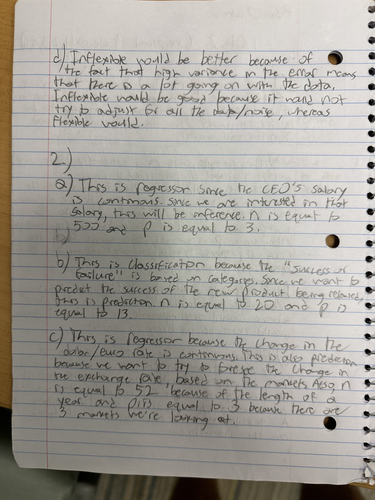 d) Inflexible would be better because of
the fact that high variance in the error means
that there is a lot going on with the data.
Inflexible would be good because it would not
try to adjust for all the data/noise, whereas
flexible would.
2.)
a) This is regression since the CEO's salary
is continuous. Since we are interested in that
salary, this will be inference. n is equal to
500 and p is equal to 3.
b) This is classification because the "success or
failure" is based on categories. Since we want to
predict the success of the new product being released,
this is prediction n is equal to 20 and p is
equal to 13.
c) This is regression because the change in the
dollar/euro rate is continuous. This is also prediction
because we want to try to foresee the change in
the exchange rate, based on the markets. Also, n
is equal to 52 because of the length of a
year and p is equal to 3 because there are
3 markets we're looking at.